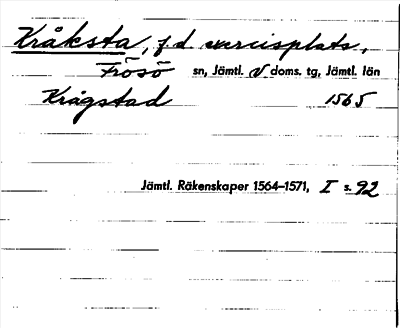 Kråksta, f.d. exercisplats,
Frösö sn, Jämtl. V doms. tg, Jämtl. län
Krågstad 1565
Jämtl. Räkenskaper 1564–1571, I s. 92